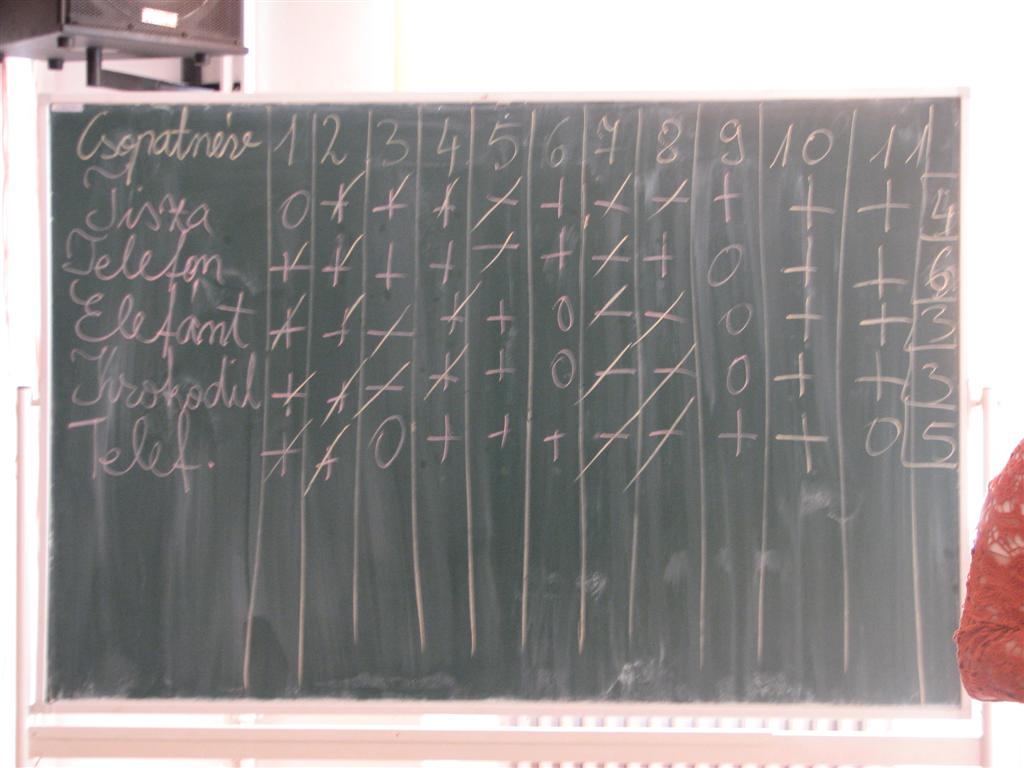 Csopatnéve 1 2 3 4 5 6 7 8 9 10 11
Tisza 0 + + + + + + + + + + 4
Telefon + + + + + + + + 0 + + 6
Elefánt + + + + + 0 + + 0 + + 3
Krokodil + + + + + 0 + + 0 + + 3
Telef. + + 0 + + + + + + + 0 5